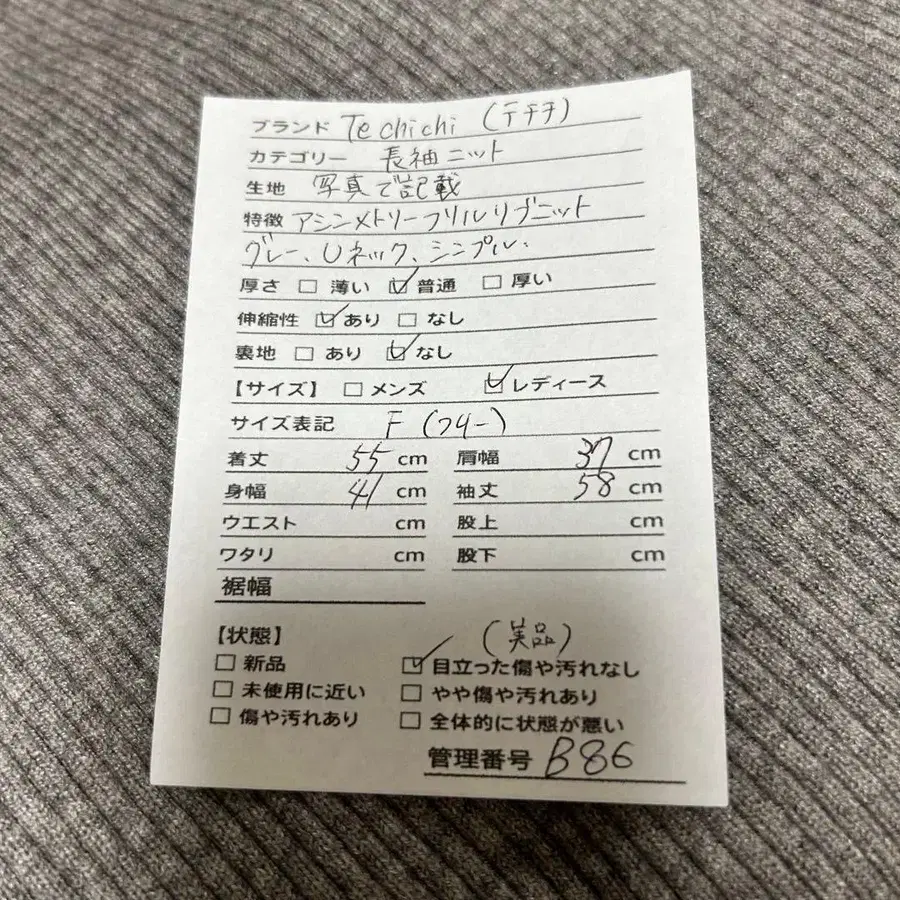 ブランド Te chichi (テチチ)
カテゴリー 長袖ニット
生地 写真で記載
特徴 アシンメトリーフリルリブニット
グレー、Uネック、シンプル、
厚さ □ 薄い ☑ 普通 □ 厚い
伸縮性 ☑ あり □ なし
裏地 □ あり ☑ なし
【サイズ】 □ メンズ ☑ レディース
サイズ表記 F (フリー)
着丈 55 cm 肩幅 37 cm
身幅 41 cm 袖丈 58 cm
ウエスト cm 股上 cm
ワタリ cm 股下 cm
裾幅
【状態】 (美品)
□ 新品 ☑ 目立った傷や汚れなし
□ 未使用に近い □ やや傷や汚れあり
□ 傷や汚れあり □ 全体的に状態が悪い
管理番号 B86